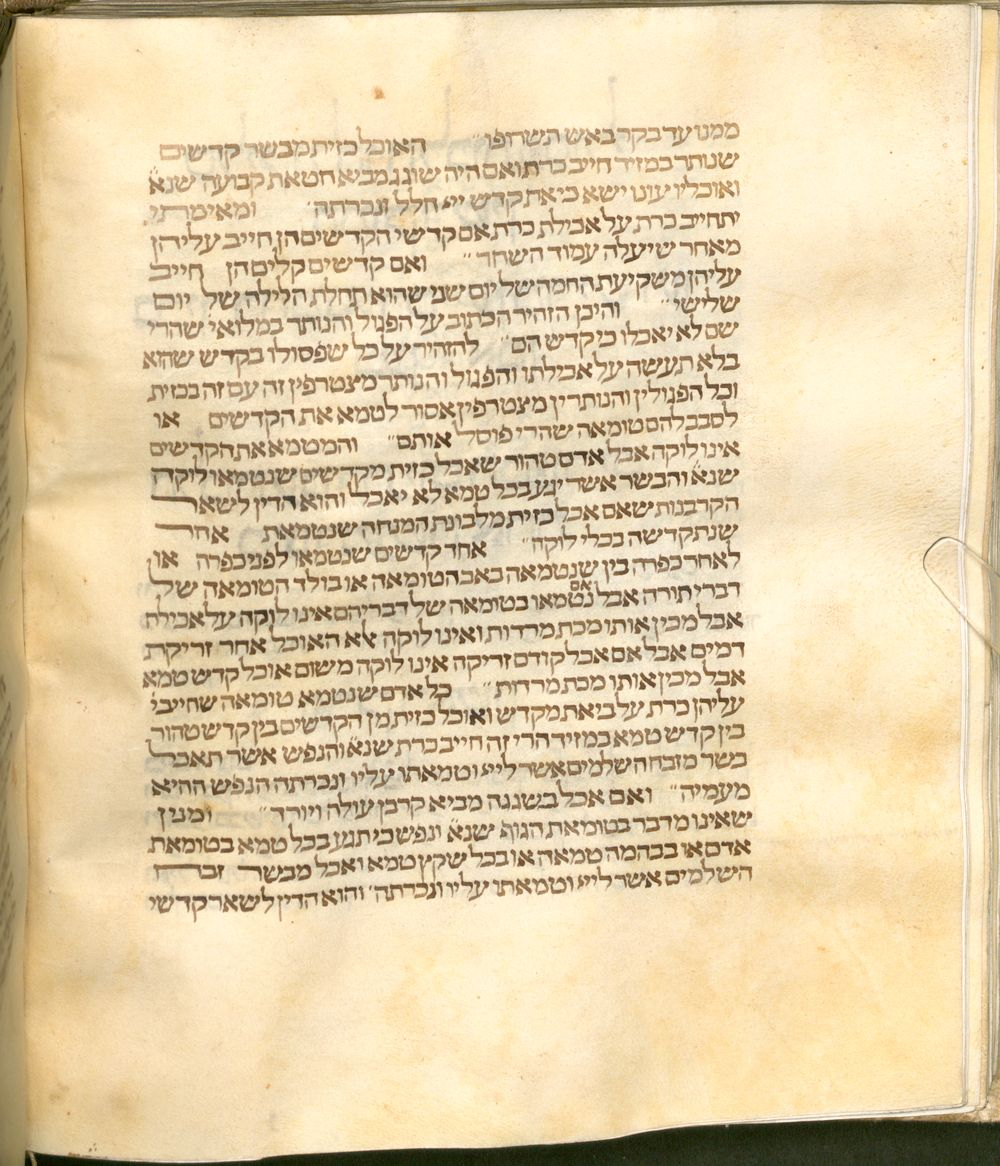 ממנו עד בקר באש תשרופו״ האוכל כזית מבשר קדשים
שנותר במזיד חייב כרת ואם היה שוגג מביא חטאת קבועה שנא׳
ואוכליו עונו ישא כי את קדש ייי חלל ונכרתה׳ ומאימתי
יתחייב כרת על אכילת כרת אם קדשי הקדשים הן חייב עליהן
מאחר שיעלה עמוד השחר״ ואם קדשים קלים הן חייב
עליהן משקיעת החמה של יום שני שהוא תחלת הלילה של יום
שלישי״ והיכן הזהיר הכתוב על הפגול והנותר במלואי שהרי
שם לא יאכלו כי קדש הם״ להזהיר על כל שפסולו בקדש שהוא
בלא תעשה על אכילתו והפגול והנותר מצטרפין זה עם זה בכזית
וכל הפגולין והנותרין מצטרפין אסור לטמא את הקדשים או
לסבב להם טומאה שהרי פוסל אותם״ והמטמא את הקדשים
אינו לוקה אבל אדם טהור שאכל כזית מקדשים שנטמאו לוקה
שנא׳ והבשר אשר יגע בכל טמא לא יאכל והוא הדין לשאר
הקרבנות שאם אכל כזית מלבונת המנחה שנטמאת אחר
שנתקדשה בכלי לוקה״ אחד קדשים שנטמאו לפני כפרה או
לאחר כפרה בין שנטמאה באב הטומאה או בולד הטומאה של
דברי תורה אבל אם נטמאו בטומאה של דבריהם אינו לוקה על אכילה
אבל מכין אותו מכת מרדות ואינו לוקה אלא האוכל אחר זריקת
דמים אבל אם אכל קודם זריקה אינו לוקה משום אוכל קדש טמא
אבל מכין אותו מכת מרדות״ כל אדם שנטמא טומאה שחייבי
עליהן כרת על ביאת מקדש ואוכל כזית מן הקדשים בין קדש טהור
בין קדש טמא במזיד הרי זה חייב כרת שנא׳ והנפש אשר תאכל
בשר מזבח השלמים אשר לייי וטמאתו עליו ונכרתה הנפש ההיא
מעמיה״ ואם אכל בשגגה מביא קרבן עולה ויורד״ ומנין
שאינו מדבר בטומאת הגוף שנא׳ ונפש כי תגע בכל טמא בטומאת
אדם או בבהמה טמאה או בכל שקץ טמא ואכל מבשר זבח
השלמים אשר לייי וטמאתו עליו ונכרתה׳ והוא הדין לשאר קדשי